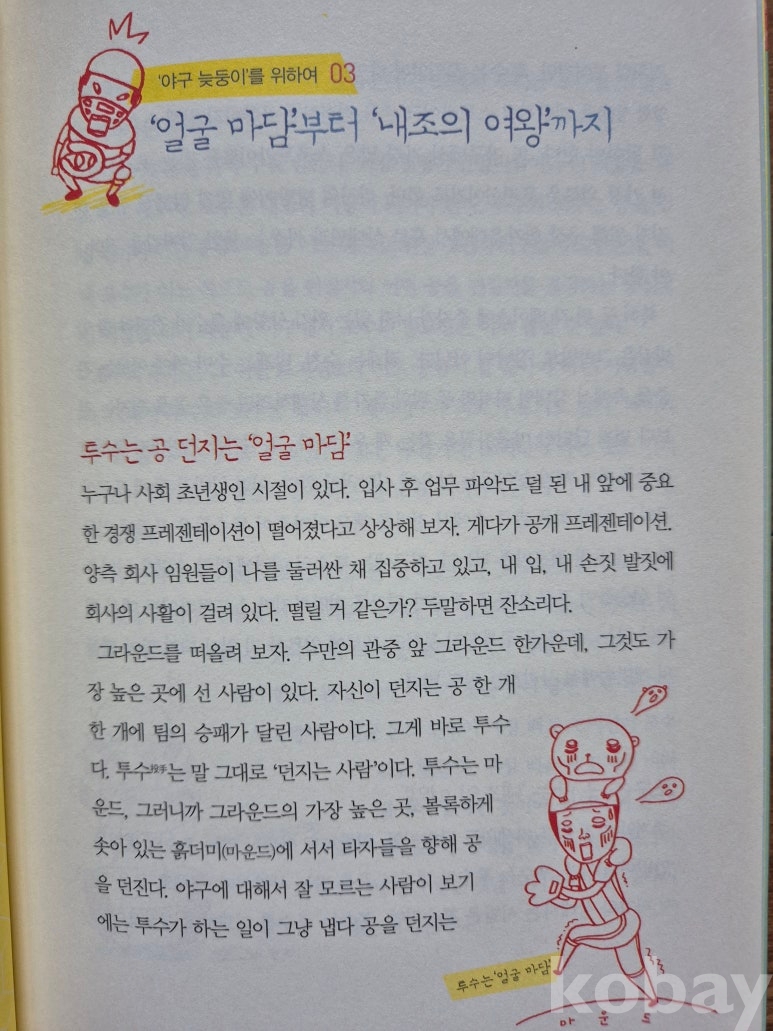 '야구 늦둥이'를 위하여 03
'얼굴 마담'부터 '내조의 여왕'까지
투수는 공 던지는 '얼굴 마담'
누구나 사회 초년생인 시절이 있다. 입사 후 업무 파악도 덜 된 내 앞에 중요
한 경쟁 프레젠테이션이 떨어졌다고 상상해 보자. 게다가 공개 프레젠테이션.
양측 회사 임원들이 나를 둘러싼 채 집중하고 있고, 내 입, 내 손짓 발짓에
회사의 사활이 걸려 있다. 떨릴 거 같은가? 두말하면 잔소리다.
그라운드를 떠올려 보자. 수만의 관중 앞 그라운드 한가운데, 그것도 가
장 높은 곳에 선 사람이 있다. 자신이 던지는 공 한 개
한 개에 팀의 승패가 달린 사람이다. 그게 바로 투수
다. 투수投手는 말 그대로 '던지는 사람'이다. 투수는 마
운드, 그러니까 그라운드의 가장 높은 곳, 볼록하게
솟아 있는 흙더미(마운드)에 서서 타자들을 향해 공
을 던진다. 야구에 대해서 잘 모르는 사람이 보기
에는 투수가 하는 일이 그냥 냅다 공을 던지는
투수는 '얼굴 마담'
마운드
kobay